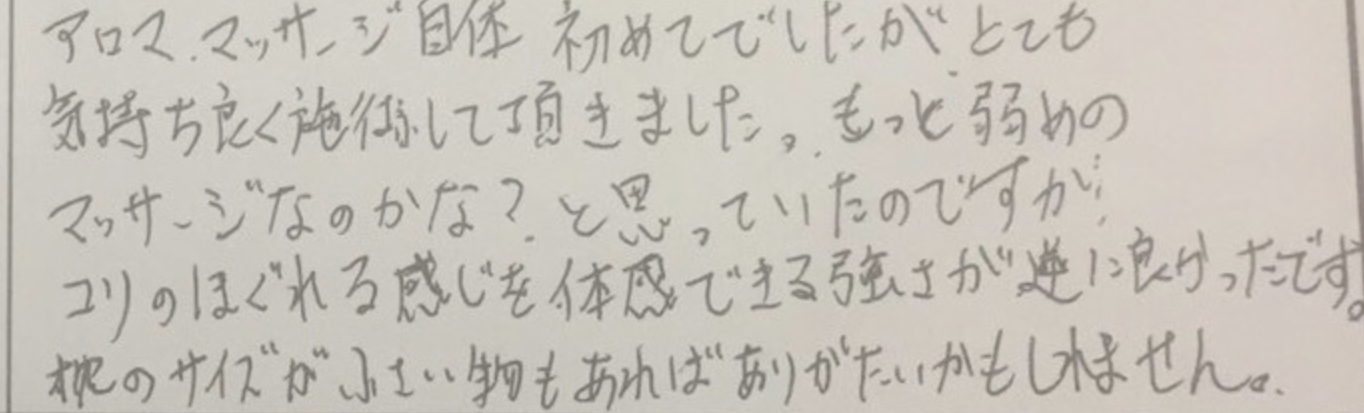 アロママッサージ自体 初めてでしたがとても
気持ち良く施術して頂きました。もっと弱めの
マッサージなのかな?と思っていたのですが
コリのほぐれる感じを体感できる強さが逆に良かったです。
枕のサイズが小さい物もあればありがたいかもしれません。